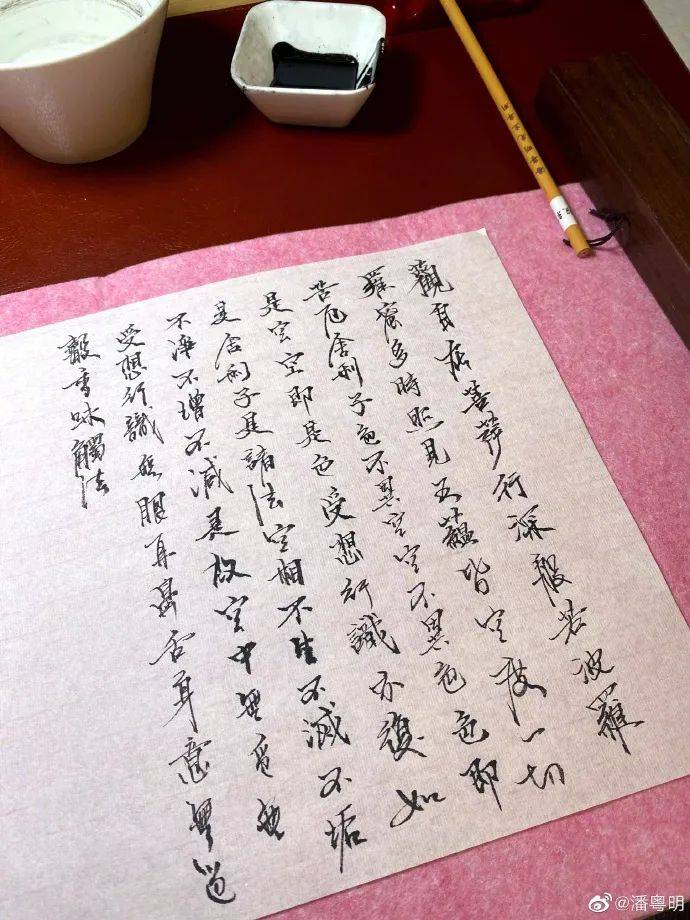 觀自在菩薩行深般若波羅
羅蜜多時照見五蘊皆空度一切
苦厄舍利子色不異空空不異色色即
是空空即是色受想行識亦復如
是舍利子是諸法空相不生不滅不垢
不淨不增不減是故空中無色無
受想行識無眼耳鼻舌身意無色
聲香味觸法
@潘粤明